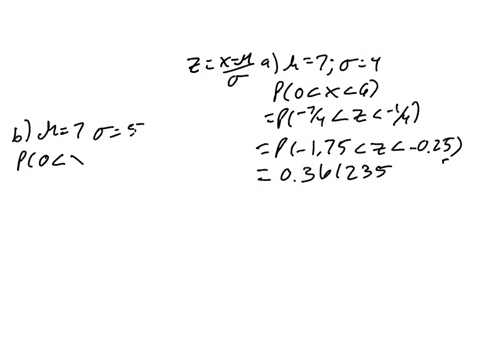 z = x-μ/σ a) μ=7; σ=4
P(0<x<6)
=P(-7/4<z<-1/4)
=P(-1,75<z<-0.25)
=0.361235
b) μ=7 σ=5
P(0<